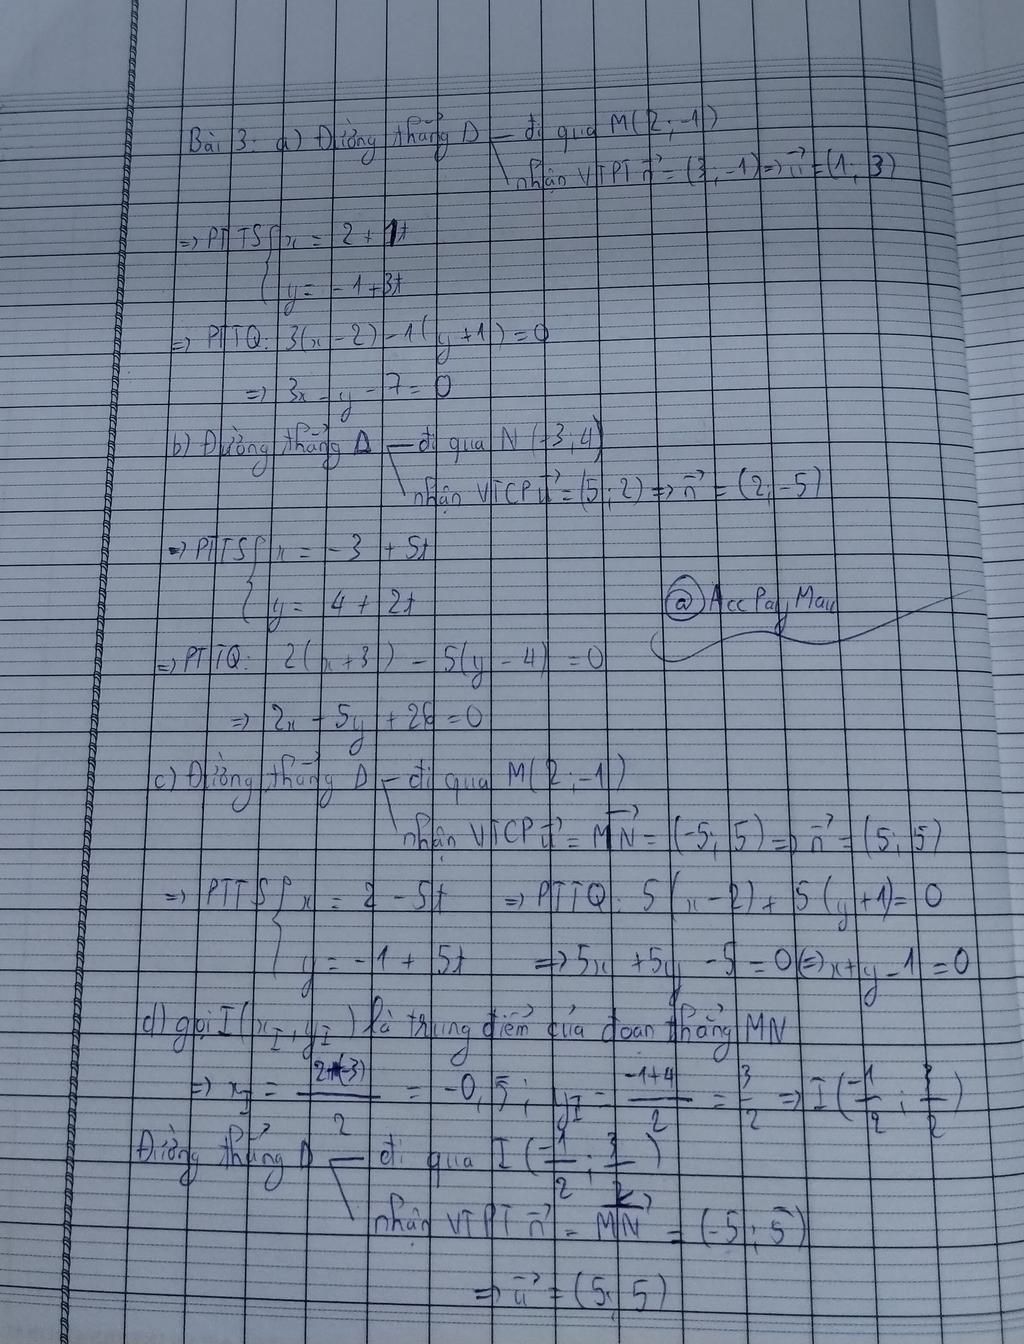 Bài 3: a) Đường thẳng Δ — đi qua M(2;-1)
nhận VTPT n⃗ = (3;-1) => u⃗ = (1; 3)
=> PTTS { x = 2 + 1t
y = -1 + 3t
=> PTTQ: 3(x - 2) - 1(y + 1) = 0
=> 3x - y - 7 = 0
b) Đường thẳng Δ — đi qua N(-3; 4)
nhận VTCP u⃗ = (5; 2) => n⃗ = (2; -5)
=> PTTS { x = -3 + 5t
y = 4 + 2t
@AccPayMau
=> PTTQ: 2(x + 3) - 5(y - 4) = 0
=> 2x - 5y + 26 = 0
c) Đường thẳng Δ — đi qua M(2; -1)
nhận VTCP u⃗ = MN⃗ = (-5; 5) => n⃗ = (5; 5)
=> PTTS { x = 2 - 5t => PTTQ: 5(x - 2) + 5(y + 1) = 0
y = -1 + 5t => 5x + 5y - 5 = 0 <=> x + y - 1 = 0
d) gọi I(x_I, y_I) là trung điểm của đoạn thẳng MN
=> x_I = (2+(-3))/2 = -0,5; y_I = (-1+4)/2 = 3/2 => I(-1/2; 3/2)
Đường thẳng Δ — đi qua I(-1/2; 3/2)
nhận VTPT n⃗ = MN⃗ = (-5; 5)
=> u⃗ = (5; 5)